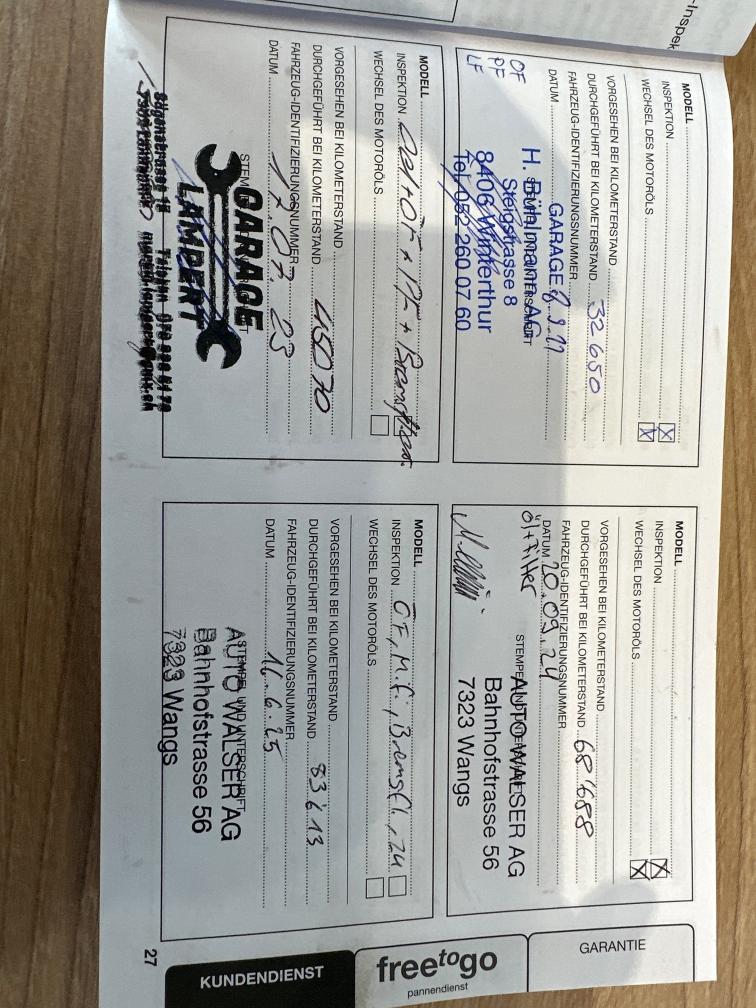 -Inspek
MODELL
INSPEKTION
WECHSEL DES MOTORÖLS
VORGESEHEN BEI KILOMETERSTAND
DURCHGEFÜHRT BEI KILOMETERSTAND 32 650
FAHRZEUG-IDENTIFIZIERUNGSNUMMER
DATUM
OF
PF
LF
GARAGE
H. Bühlmann AG
Steigstrasse 8
8406 Winterthur
Tel. 052 260 07 60
MODELL
INSPEKTION Oel+OF + PF +
WECHSEL DES MOTORÖLS
VORGESEHEN BEI KILOMETERSTAND
DURCHGEFÜHRT BEI KILOMETERSTAND 45070
FAHRZEUG-IDENTIFIZIERUNGSNUMMER
DATUM 17.07.23
GARAGE
LAMPERT
MODELL
INSPEKTION
WECHSEL DES MOTORÖLS
VORGESEHEN BEI KILOMETERSTAND
DURCHGEFÜHRT BEI KILOMETERSTAND 68'688
FAHRZEUG-IDENTIFIZIERUNGSNUMMER
DATUM 20.09.24
Öl+Filter
AUTO WALSER AG
Bahnhofstrasse 56
7323 Wangs
MODELL
INSPEKTION ÖF, M.Fi, Bremsfl.,
WECHSEL DES MOTORÖLS
VORGESEHEN BEI KILOMETERSTAND
DURCHGEFÜHRT BEI KILOMETERSTAND 83'613
FAHRZEUG-IDENTIFIZIERUNGSNUMMER
DATUM 16.6.25
STEMPEL UND UNTERSCHRIFT
AUTO WALSER AG
Bahnhofstrasse 56
7323 Wangs
GARANTIE
freetogo
pannendienst
KUNDENDIENST
27